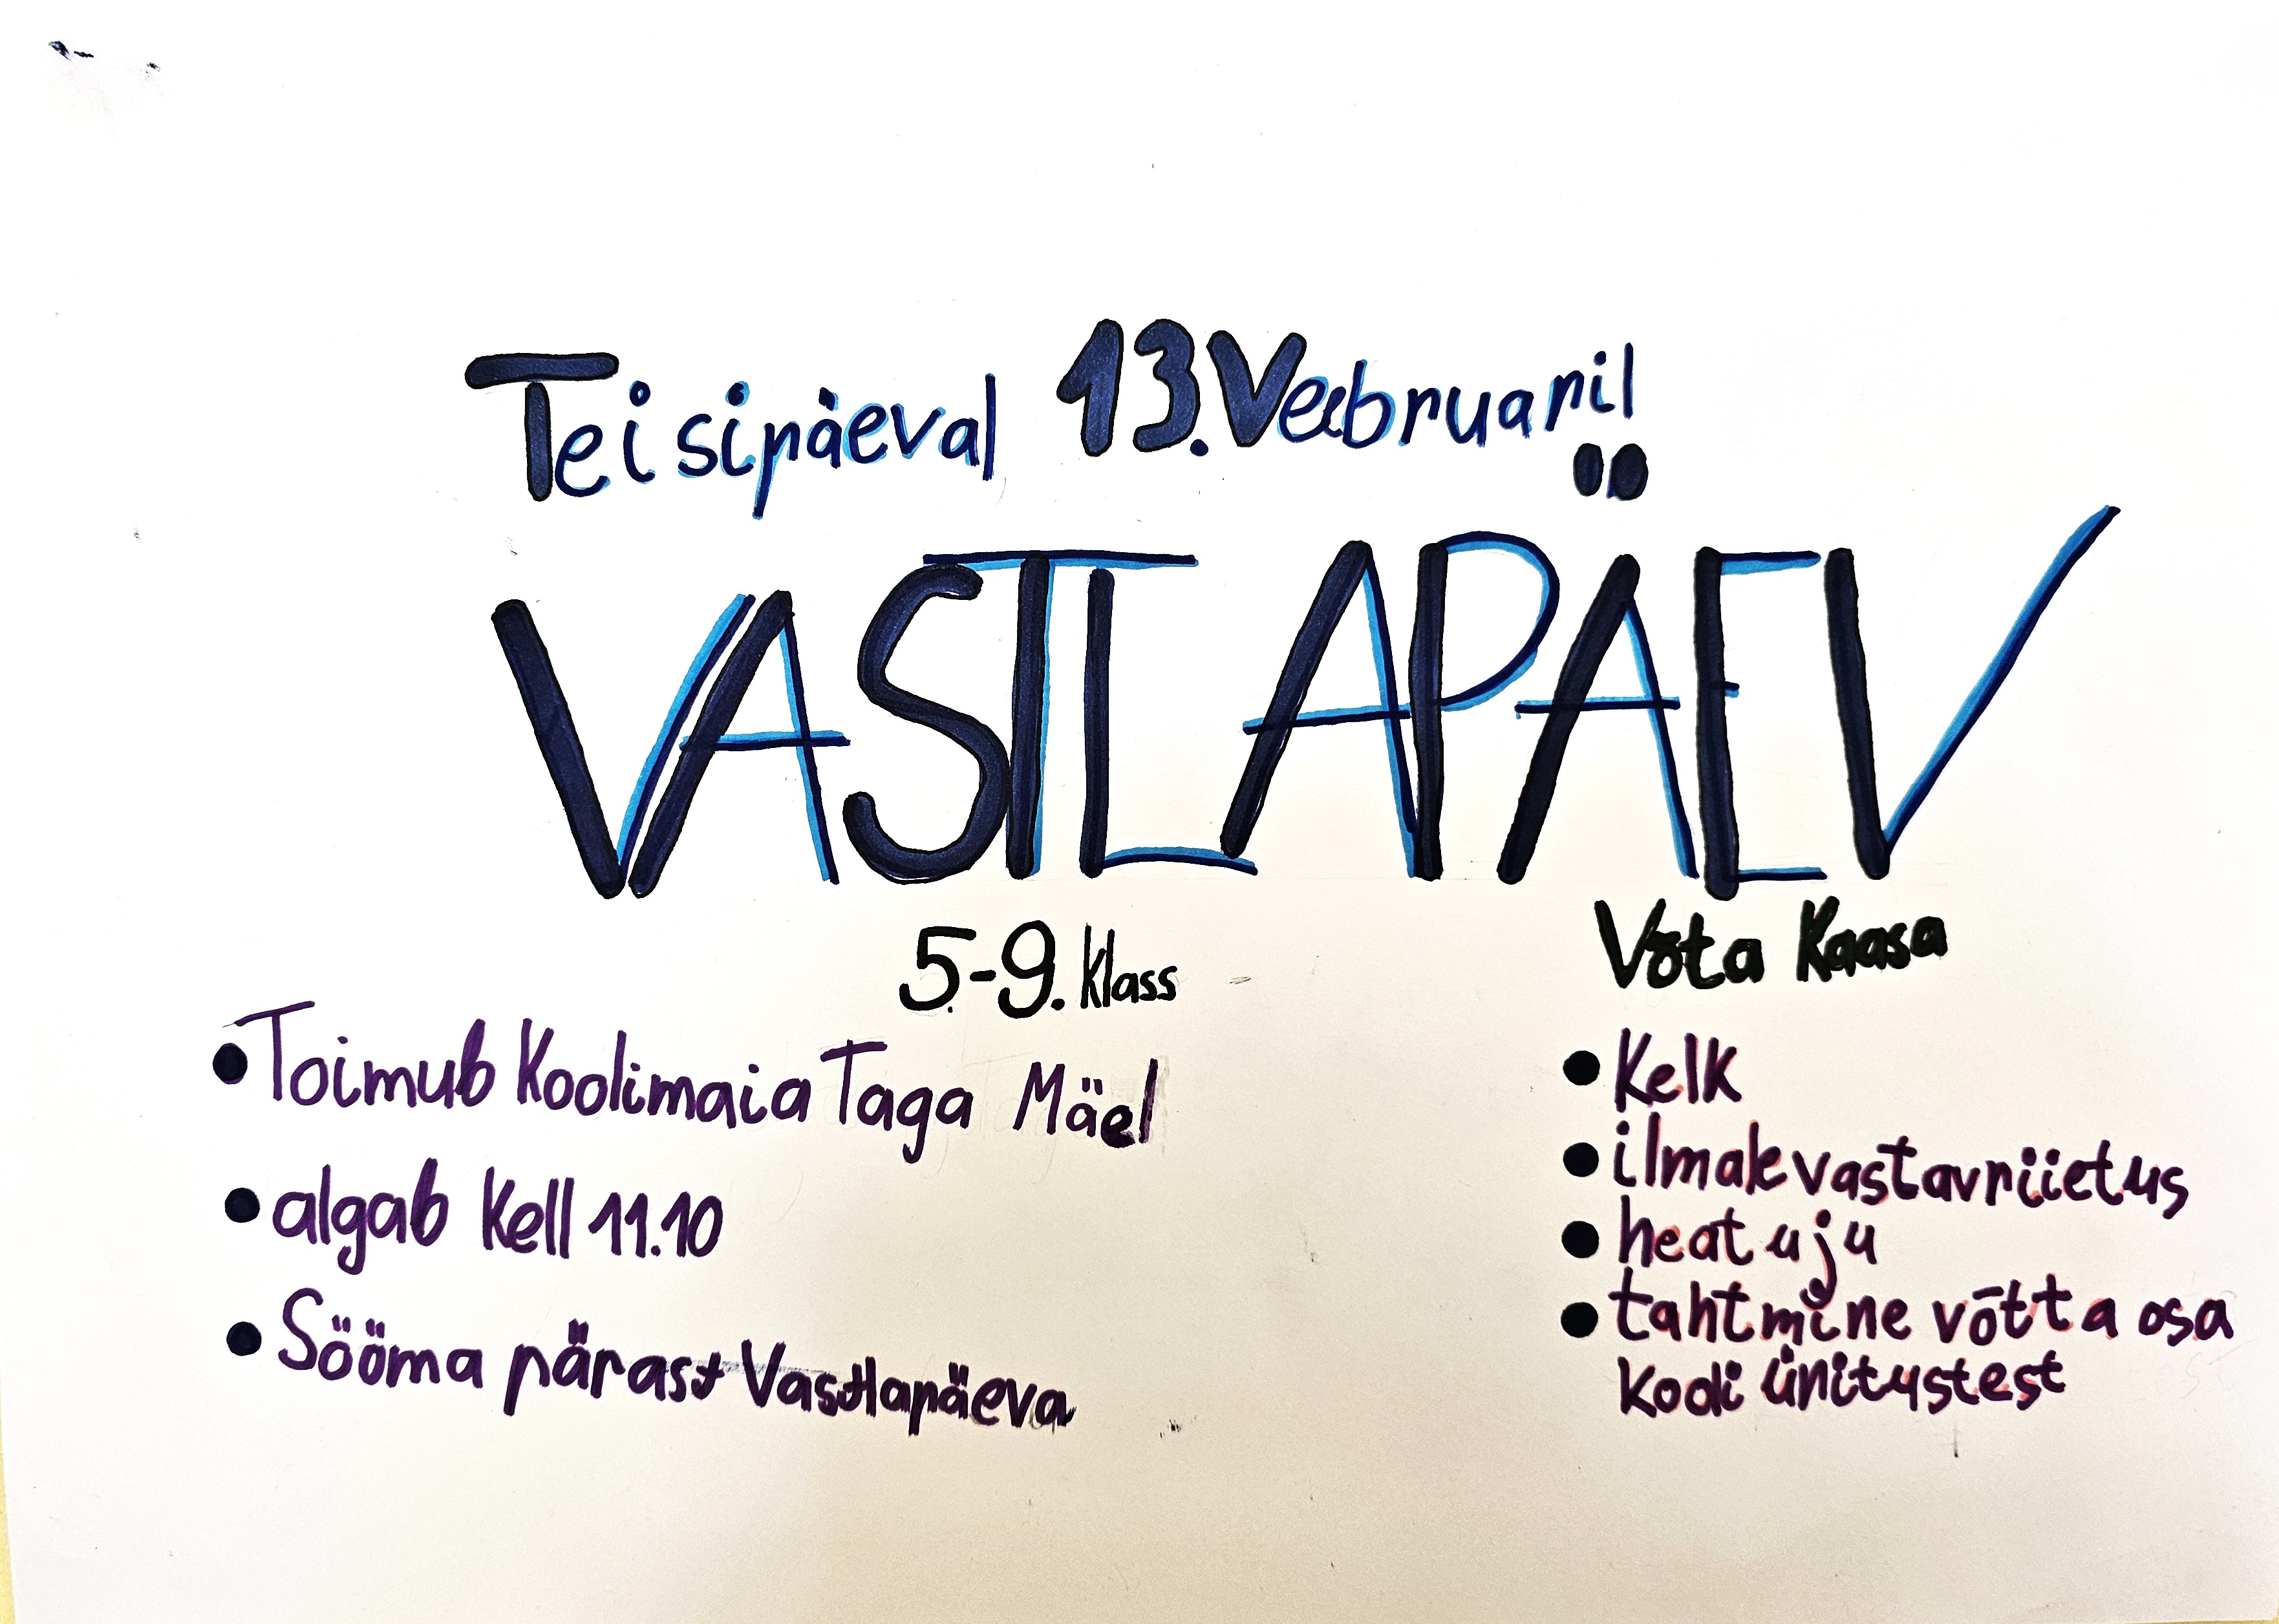 Teisipäeval 13. Veebruaril
VASTLAPÄEV
5.-9. klass
• Toimub Koolimaia Taga Mäel
• algab Kell 11.10
• Sööma pärast Vastlapäeva
Võta Kaasa
• Kelk
• ilmakvastavriietus
• heat uju
• tahtmine võtta osa
kooli üritustest